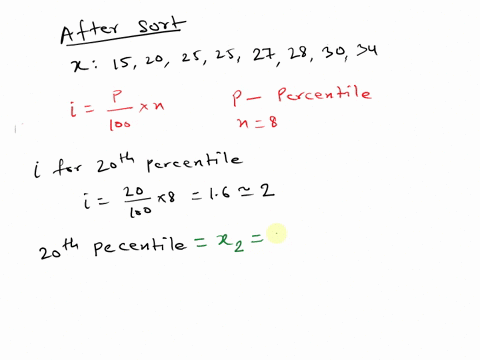 After Sort
x: 15, 20, 25, 25, 27, 28, 30, 34
i = P/100 × n P — Percentile
n = 8
i for 20th percentile
i = 20/100 × 8 = 1.6 ≃ 2
20th pecentile = x₂ =